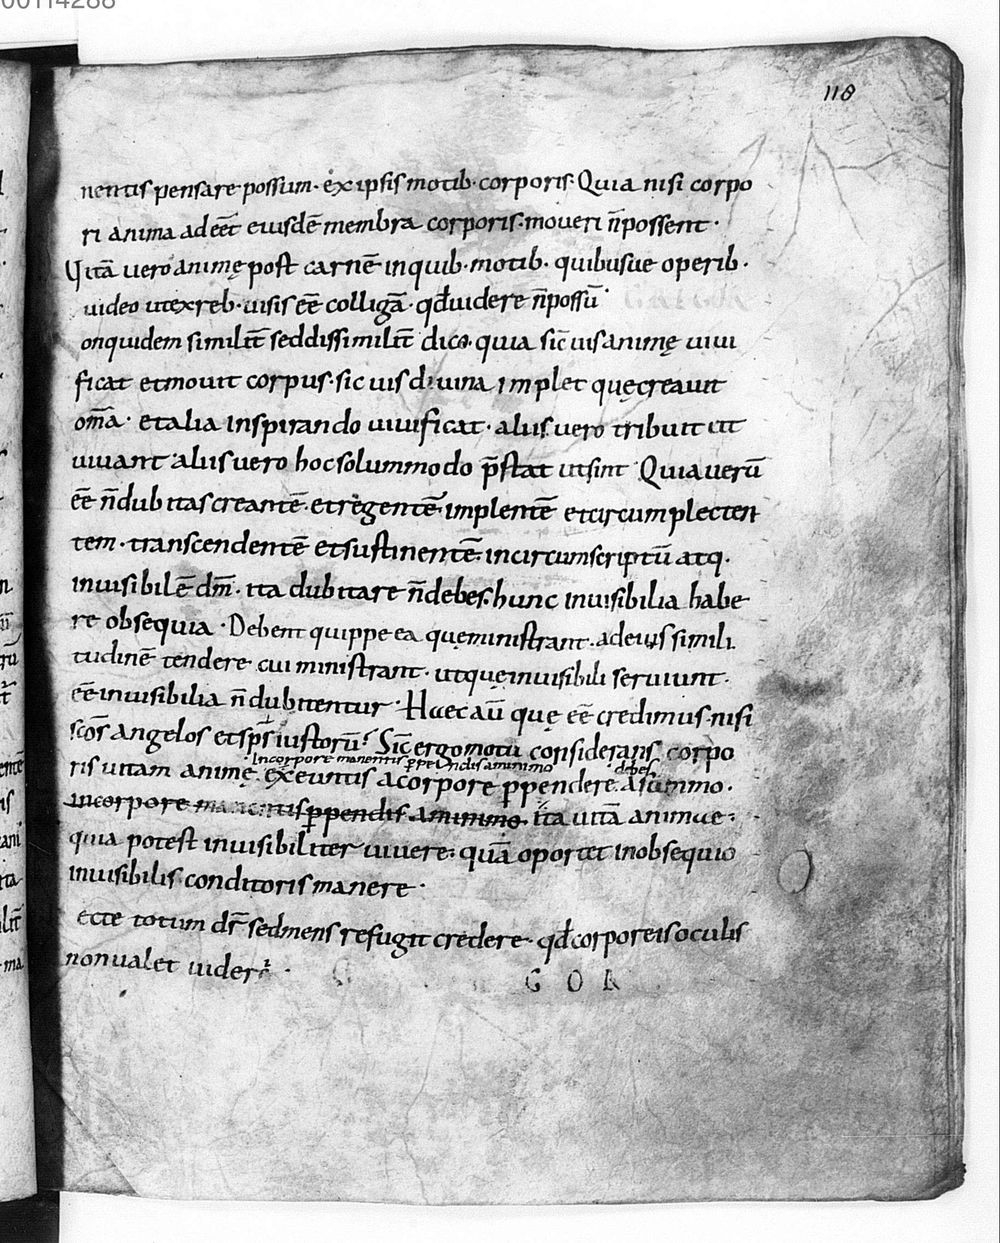 00114288
118
nentis pensare possum· ex ipsis motib· corporis· Quia nisi corpo
ri anima adeēt eiusdē membra corporis· moueri n̄possent·
Uitā uero animę post carnē inquib· motib· quibusue operib·
uideo utexreb· uisis eē colligā· qđuidere n̄possū
onquidem similit̄ seddissimilit̄ dico· quia sic̄ uis animę uiui
ficat etmouit corpus· sic uis diuina implet quęcreauit
om̄a· etalia inspirando uiuificat· aliis uero tribuit ut
uiuant· aliis uero hoc solummodo p̄stat utsint· Quia uerū
eē n̄dubitas creantē· etregentē· implentē etcircumplecten
tem· transcendentē etsustinentē· incircumscriptū atq·
inuisibilē dm̄· ita dubitare n̄debes· hunc inuisibilia habe
re obsequia· Debent quippe ea quęministrant· adeius simili
tudinē tendere cui ministrant· utquęinuisibili seruiunt·
eē inuisibilia n̄dubitentur· Haec aū que eē credimus· nisi
sc̄os angelos etsps̄ iustorū· Sic̄ ergo motū considerans corpo
Incorpore manentis ꝑpendis aminimo debes
ris uitam animę exeuntis acorpore ꝑpendere· asummo·
incorpore manentis ꝑpendis aminimo· ita uitā animae·
quia potest inuisibiliter uiuere· quā oportet inobsequio
inuisibilis conditoris manere·
ecte totum dr̄ sedmens refugit credere· qđcorporeis oculis
nonualet uider̄·
G O R